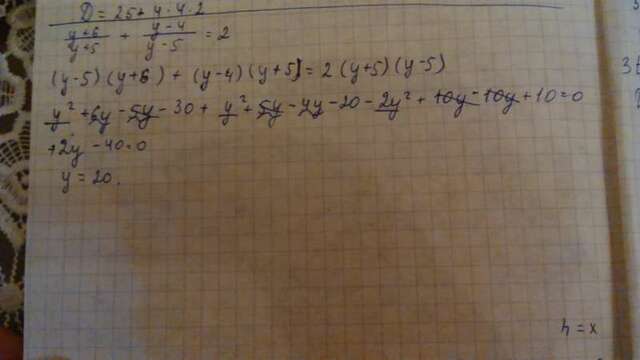 D = 25 + 4 · 4 · 2
(y+6)/(y+5) + (y-4)/(y-5) = 2
(y-5)(y+6) + (y-4)(y+5) = 2(y+5)(y-5)
y² + 6y - 5y - 30 + y² + 5y - 4y - 20 - 2y² + 10y - 10y + 10 = 0
+2y - 40 = 0
y = 20.